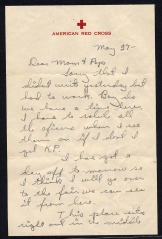 AMERICAN RED CROSS
May 27-
Dear Mom & Pop,
Sorry that I
didn't write yesterday but
had to work. Boy do
we have a time here
I have to salute all
the officers when I see
them or if I don't I
get K.P.
I has got a
day off tomorrow so
I think I will go over
to the fair we can see
it from here.
This place sets
right out in the middle